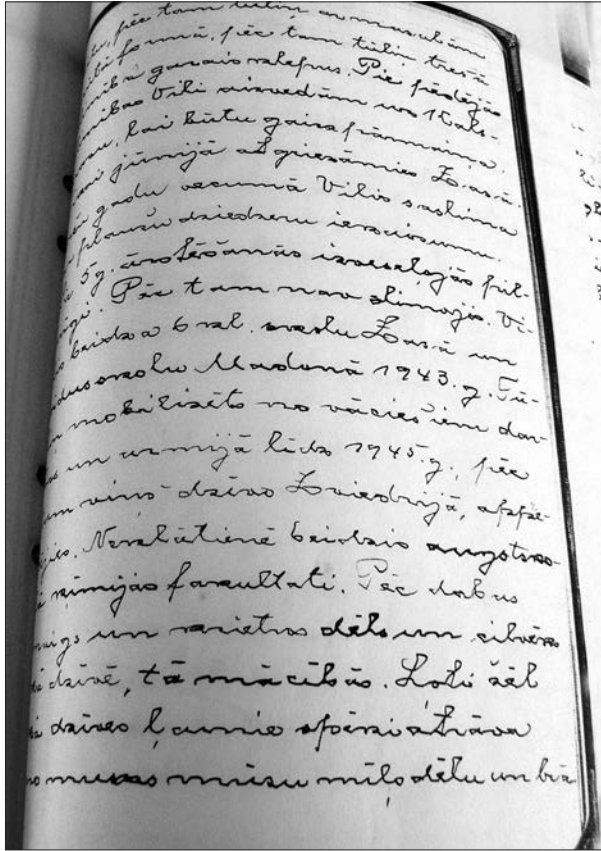 pēc tam tūliņ ar masalām
formā, pēc tam tūliņ trešā
garais klepus. Pēc pēdējās
Vili aizvedām uz Kals-
lai būtu gaisa pārmaiņa.
jūnijā atgriezāmies Lazā.
gadu vecumā Vilis saslima
plaušu dziedzeru iekaisumu.
5 g. ārstēšanās izveseļojās pil-
Pēc tam nav slimojis. Vi-
beidza 6 kl. skolu Lazā un
skolu Madonā 1943. g. Tū-
mobilizēts no vāciešiem dar-
un armijā līdz 1945. g., pēc
viņš dzīvo Zviedrijā, appre-
Neklātienē beidzis augstsko-
ķīmijas fakultāti. Pēc dabas
un krietns dēls un cilvēks
dzīvē, tā mācībās. Ļoti žēl
dzīves ļaunie spēki atrāva
no mums mūsu mīļo dēlu un brā-